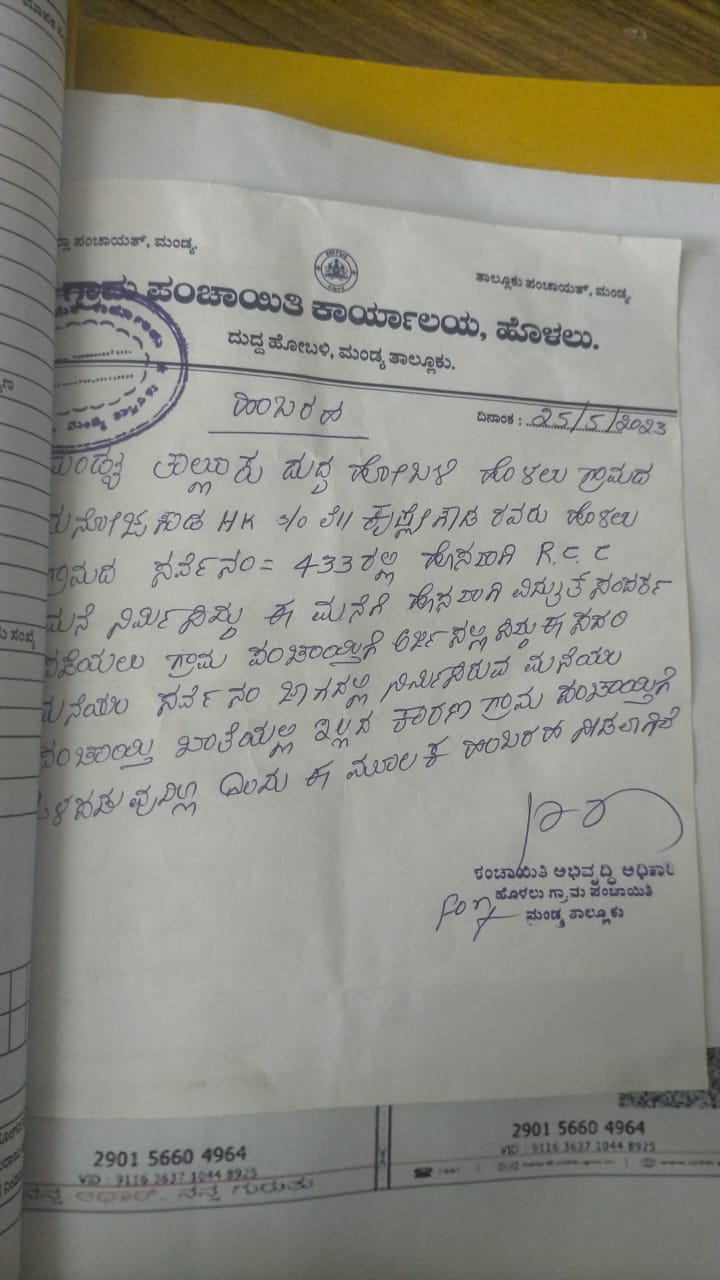 ಪಂಚಾಯತ್, ಮಂಡ್ಯ.
ತಾಲ್ಲೂಕು ಪಂಚಾಯತ್, ಮಂಡ್ಯ
ಗ್ರಾಮ ಪಂಚಾಯಿತಿ ಕಾರ್ಯಾಲಯ, ಹೊಳಲು.
ದುದ್ದ ಹೋಬಳಿ, ಮಂಡ್ಯ ತಾಲ್ಲೂಕು.
ಹಿಂಬರಹ
ದಿನಾಂಕ : 25/5/2023
ಮಂಡ್ಯ ತಾಲ್ಲೂಕು ದುದ್ದ ಹೋಬಳಿ ಹೊಳಲು ಗ್ರಾಮದ
ಗೌಡ HK s/o ರವರು ಹೊಳಲು
ಗ್ರಾಮದ ಸರ್ವೆ ನಂ = 433 ರಲ್ಲಿ ಹೊಸದಾಗಿ R.C.C
ಮನೆ ನಿರ್ಮಿಸಿದ್ದು ಈ ಮನೆಗೆ ಹೊಸದಾಗಿ ವಿದ್ಯುತ್ ಸಂಪರ್ಕ
ಪಡೆಯಲು ಗ್ರಾಮ ಪಂಚಾಯ್ತಿಗೆ ಅರ್ಜಿ ಸಲ್ಲಿಸಿದ್ದು ಈ ಸದರಿ
ಮನೆಯು ಸರ್ವೆ ನಂ ಜಾಗದಲ್ಲಿ ನಿರ್ಮಿಸಿರುವ ಮನೆಯು
ಪಂಚಾಯ್ತಿ ಖಾತೆಯಲ್ಲಿ ಇಲ್ಲದ ಕಾರಣ ಗ್ರಾಮ ಪಂಚಾಯ್ತಿಗೆ
ಒಳಪಡುವುದಿಲ್ಲ ಎಂದು ಈ ಮೂಲಕ ಹಿಂಬರಹ ನೀಡಲಾಗಿದೆ
ಪಂಚಾಯಿತಿ ಅಭಿವೃದ್ಧಿ ಅಧಿಕಾರಿ
ಹೊಳಲು ಗ್ರಾಮ ಪಂಚಾಯಿತಿ
ಮಂಡ್ಯ ತಾಲ್ಲೂಕು
2901 5660 4964
VID : 9116 3637 1044 8925
2901 5660 4964
VID : 9116 3637 1044 8925
ನನ್ನ ಆಧಾರ್, ನನ್ನ ಗುರುತು